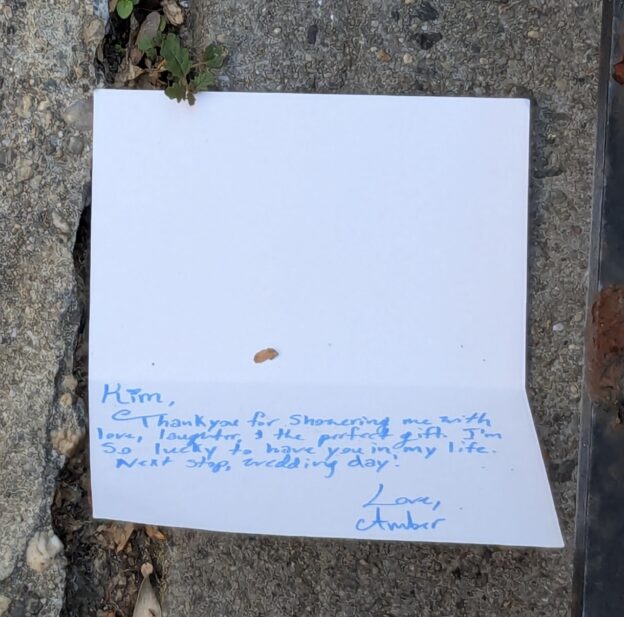 Kim,
Thank you for showering me with
love, laughter, & the perfect gift. I'm
so lucky to have you in my life.
Next stop, wedding day!
Love,
Amber